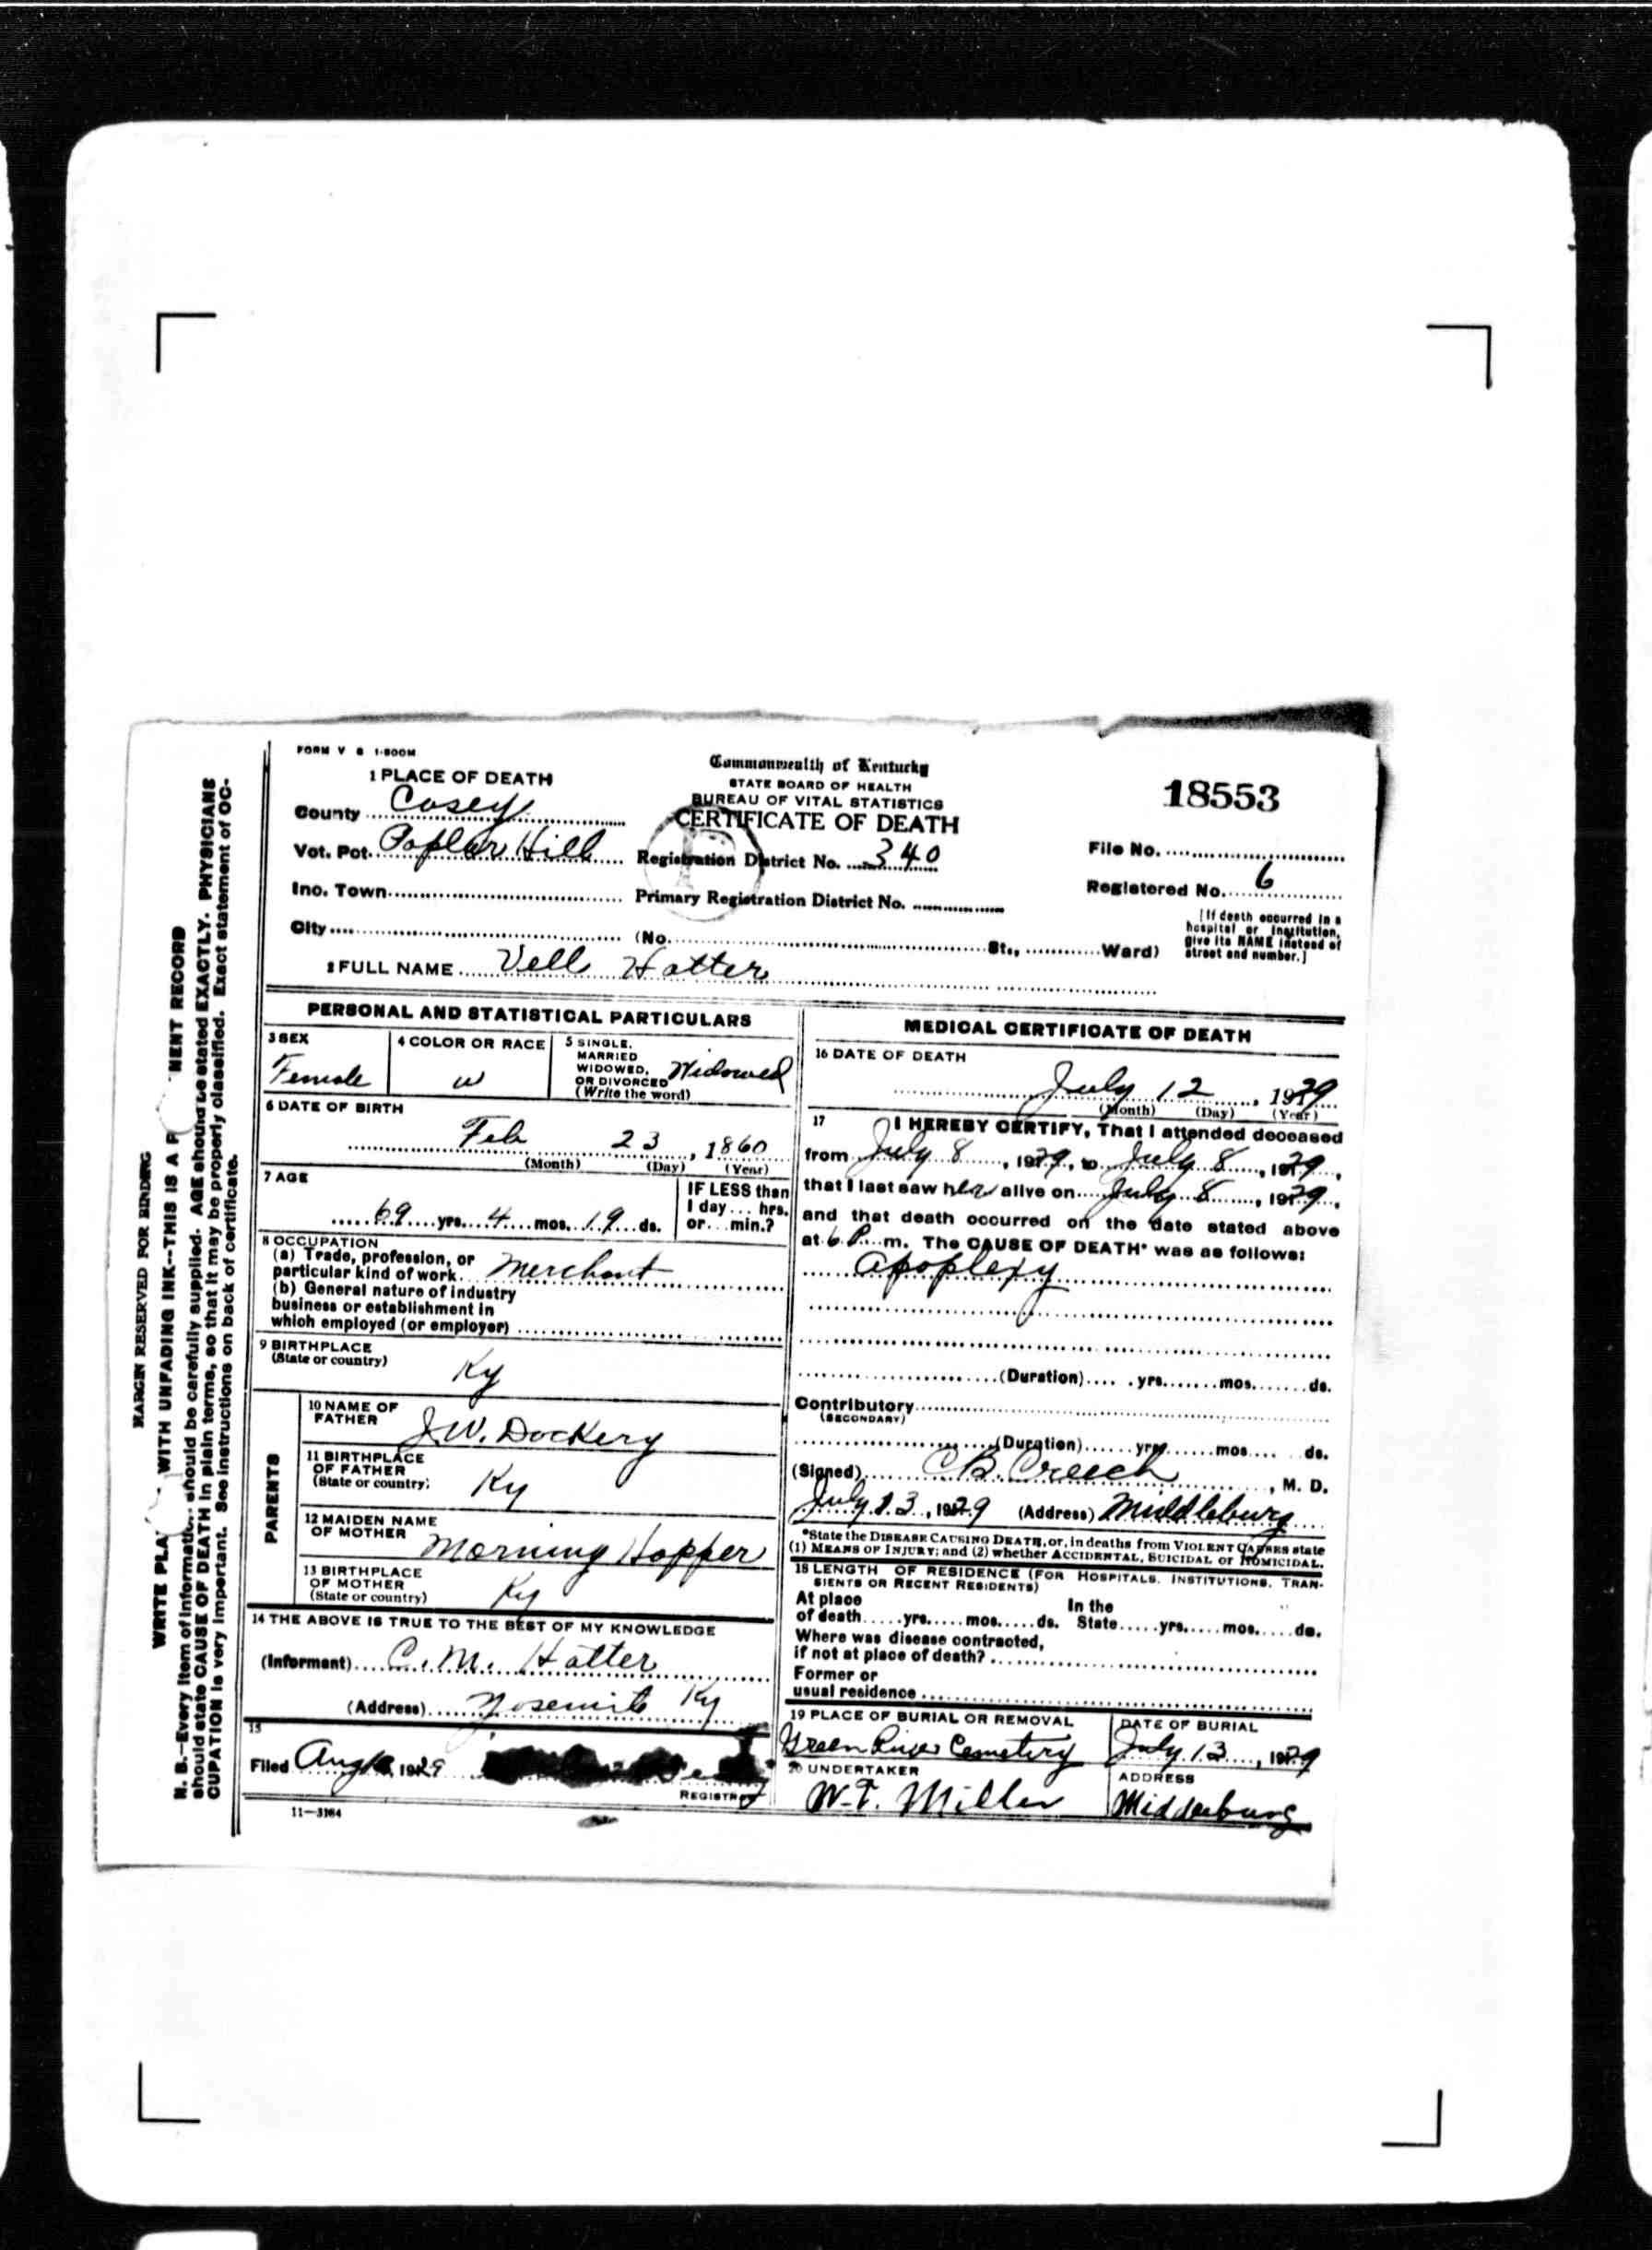 FORM V S 1-500M
Commonwealth of Kentucky
STATE BOARD OF HEALTH
BUREAU OF VITAL STATISTICS
CERTIFICATE OF DEATH
18553
1 PLACE OF DEATH
County Casey
Vot. Pct. Poplar Hill
Registration District No. 340
File No.
Inc. Town
Primary Registration District No.
Registered No. 6
City (No. St., Ward)
[If death occurred in a
hospital or institution,
give its NAME instead of
street and number.]
2 FULL NAME Vell Hatter
PERSONAL AND STATISTICAL PARTICULARS
3 SEX
Female
4 COLOR OR RACE
w
5 SINGLE,
MARRIED
WIDOWED,
OR DIVORCED
(Write the word)
Widowed
6 DATE OF BIRTH
Feb 23, 1860
(Month) (Day) (Year)
7 AGE
69 yrs. 4 mos. 19 ds.
IF LESS than
1 day... hrs.
or... min.?
8 OCCUPATION
(a) Trade, profession, or
particular kind of work Merchant
(b) General nature of industry
business or establishment in
which employed (or employer)
9 BIRTHPLACE
(State or country)
Ky
PARENTS
10 NAME OF
FATHER
J.W. Dockery
11 BIRTHPLACE
OF FATHER
(State or country)
Ky
12 MAIDEN NAME
OF MOTHER
Morning Hopper
13 BIRTHPLACE
OF MOTHER
(State or country)
Ky
14 THE ABOVE IS TRUE TO THE BEST OF MY KNOWLEDGE
(Informant) C. M. Hatter
(Address) Yosemite Ky
15
Filed Aug 1929
REGISTRAR
11-3184
MEDICAL CERTIFICATE OF DEATH
16 DATE OF DEATH
July 12, 1929
(Month) (Day) (Year)
17 I HEREBY CERTIFY, That I attended deceased
from July 8, 1929, to July 8, 1929,
that I last saw her alive on July 8, 1929,
and that death occurred on the date stated above
at 6 P. m. The CAUSE OF DEATH* was as follows:
Apoplexy
(Duration) yrs. mos. ds.
Contributory
(SECONDARY)
(Duration) yrs. mos. ds.
(Signed) C B Creech, M. D.
July 13, 1929 (Address) Middleburg
*State the DISEASE CAUSING DEATH, or, in deaths from VIOLENT CAUSES state
(1) MEANS OF INJURY; and (2) whether ACCIDENTAL, SUICIDAL or HOMICIDAL.
18 LENGTH OF RESIDENCE (FOR HOSPITALS, INSTITUTIONS, TRAN-
SIENTS OR RECENT RESIDENTS)
At place
of death yrs. mos. ds.
In the
State yrs. mos. ds.
Where was disease contracted,
if not at place of death?
Former or
usual residence
19 PLACE OF BURIAL OR REMOVAL
Green River Cemetery
DATE OF BURIAL
July 13, 1929
20 UNDERTAKER
W.T. Miller
ADDRESS
Middleburg
MARGIN RESERVED FOR BINDING
WRITE PLA WITH UNFADING INK--THIS IS A P NENT RECORD
N. B.—Every item of information should be carefully supplied. AGE should be stated EXACTLY. PHYSICIANS
should state CAUSE OF DEATH in plain terms, so that it may be properly classified. Exact statement of OC-
CUPATION is very important. See instructions on back of certificate.